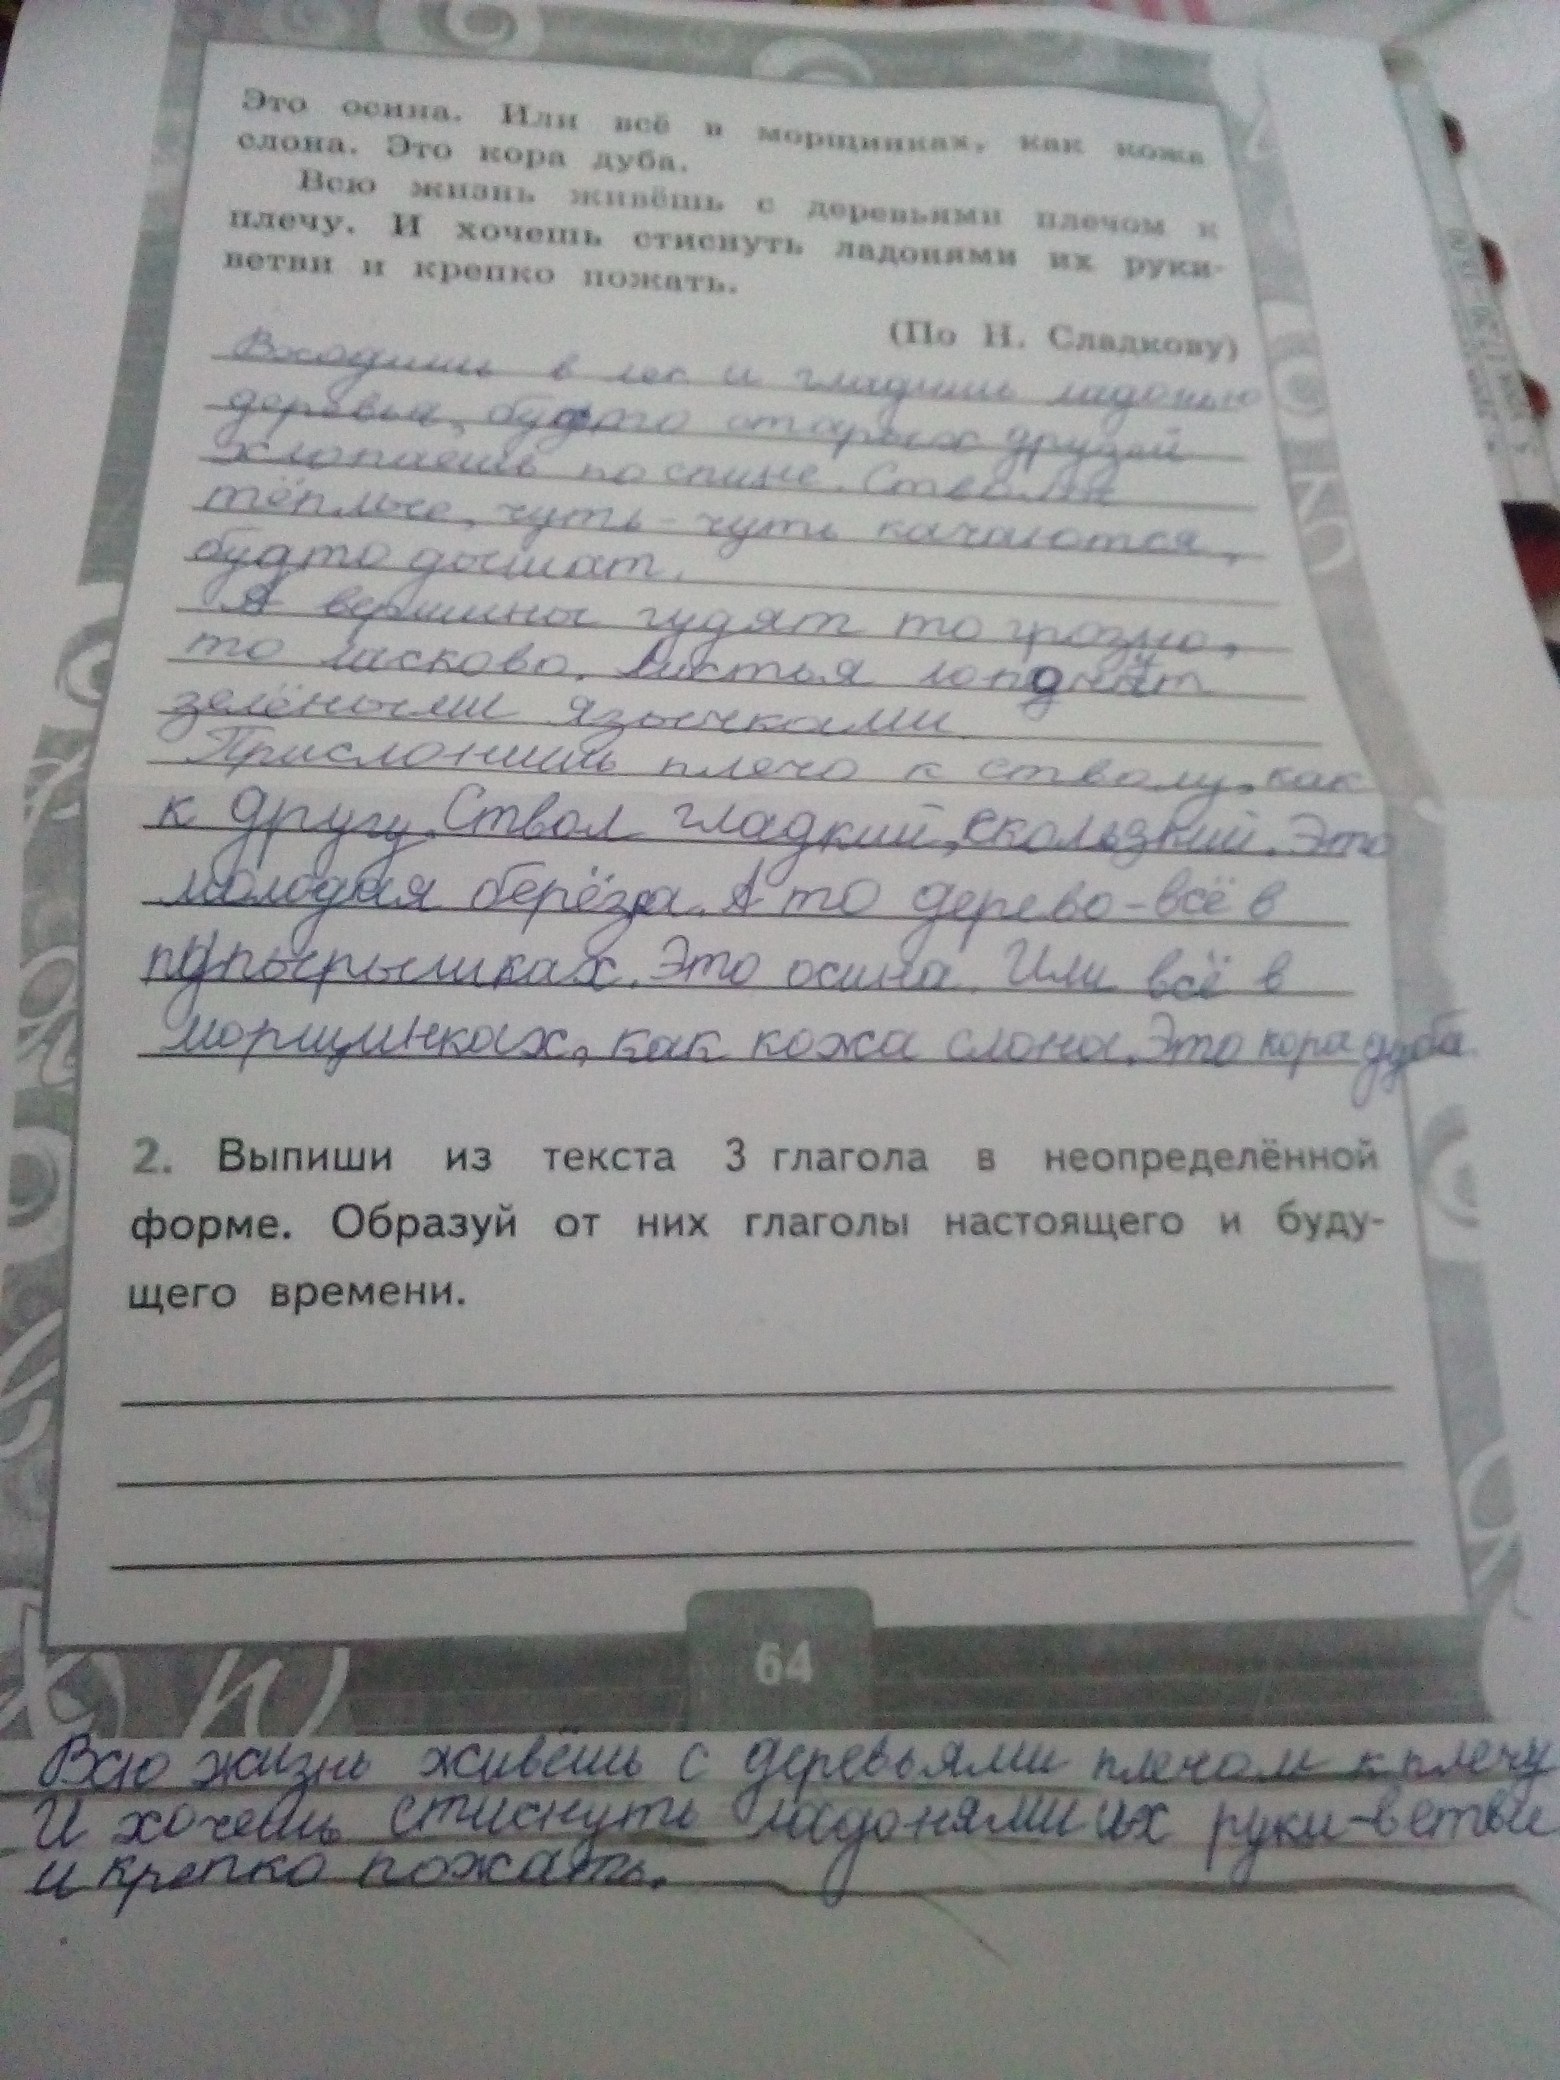 Это осина. Или всё в морщинках, как кожа
слона. Это кора дуба.
Всю жизнь живёшь с деревьями плечом к
плечу. И хочешь стиснуть ладонями их руки-
ветви и крепко пожать.
(По Н. Сладкову)
Входишь в лес и гладишь ладонью
деревья, будто старых друзей
хлопаешь по спине. Стволы
тёплые, чуть-чуть качаются,
будто дышат.
А вершины гудят то грозно,
то ласково. Листья
зелёными язычками.
Прислонишь плечо к стволу, как
к другу. Ствол гладкий, скользкий. Это
молодая берёза. А то дерево-всё в
Это осина. Или всё в
морщинках, как кожа слона. Это кора дуба
2. Выпиши из текста 3 глагола в неопределённой
форме. Образуй от них глаголы настоящего и буду-
щего времени.
64
Всю жизнь живёшь с деревьями плечом к плечу
И хочешь стиснуть ладонями их руки-ветви
и крепко пожать.